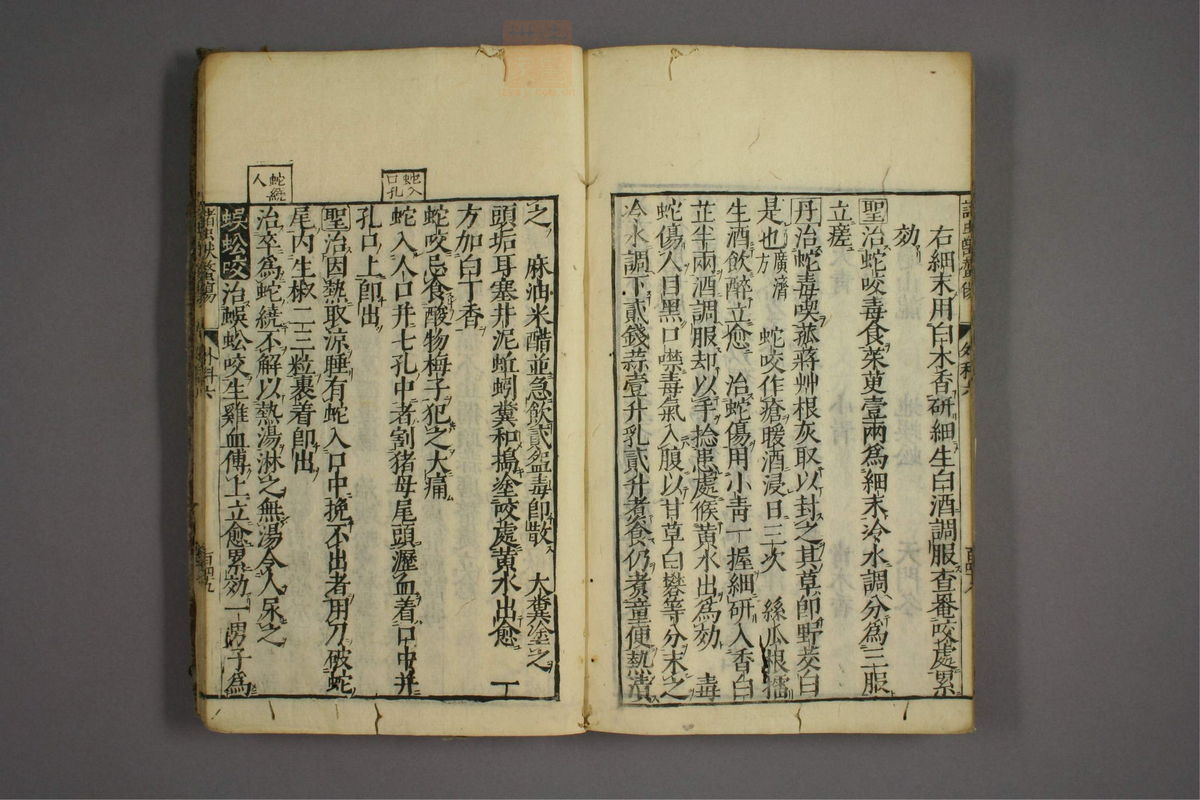 右細末用白木香研細生白酒調服查蕃咬處累
效
聖治蛇咬毒食茱萸壹兩爲細末冷水調分爲三服
立瘥
丹治蛇毒喫菰蔣艸根灰取以封之其草卽野茭白
是也廣濟方 蛇咬作瘡暖酒浸日三次 絲瓜根擂
生酒飲醉立愈 治蛇傷用小靑一握細研入香白
芷半兩酒調服却以手捻患處候黃水出爲効 毒
蛇傷人目黑口噤毒氣入腹以甘草白礬等分末之
冷水調下貳錢蒜壹升乳貳升煮食仍煮童便熱漬
外科六
之 麻油米醋並急飲貳盌毒卽散 大糞塗之
頭垢耳塞井泥蚯蚓糞和搗塗咬處黃水出愈 一
方加白丁香
蛇咬忌食酸物梅子犯之大痛
蛇入口孔
蛇入人口并七孔中者割猪母尾頭瀝血着口中并
孔口上卽出
聖治因熱取涼睡有蛇入口中挽不出者用刀破蛇
尾內生椒二三粒裹着卽出
蛇繞人
治卒爲蛇繞不解以熱湯淋之無湯令人尿之
蜈蚣咬治蜈蚣咬生雞血傅上立愈累効一男子爲
外科六
百四九